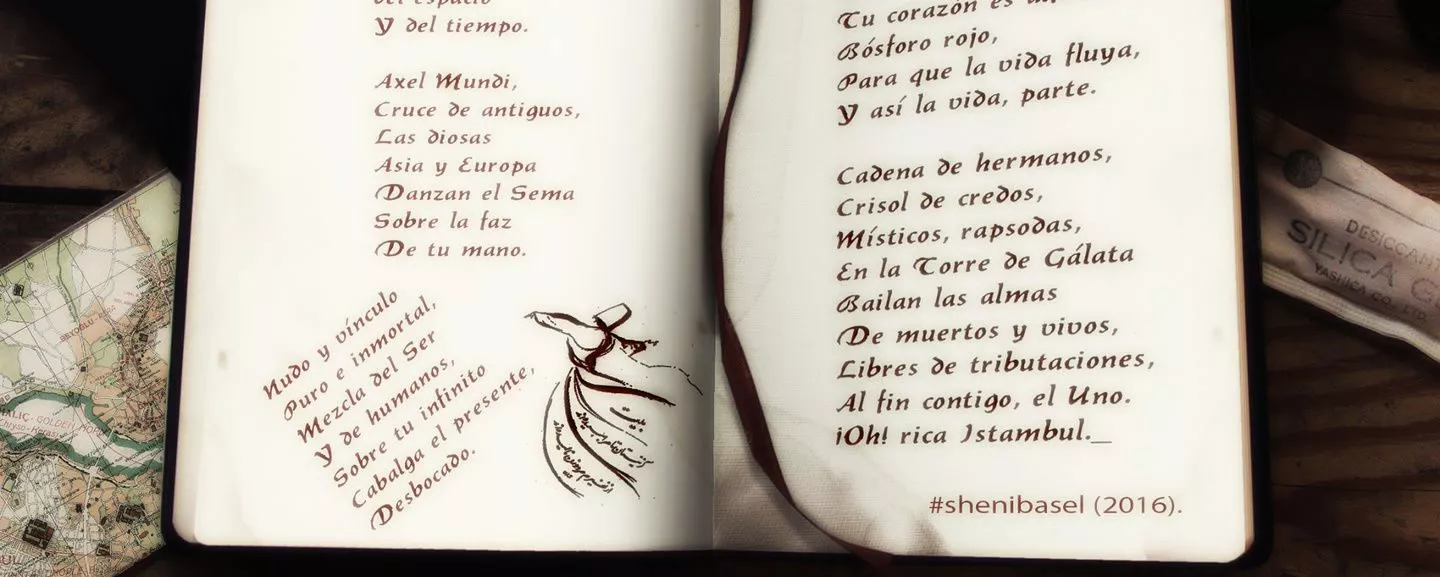 del espacio
Y del tiempo.
Axel Mundi,
Cruce de antiguos,
Las diosas
Asia y Europa
Danzan el Sema
Sobre la faz
De tu mano.
Nudo y vínculo
Puro e inmortal,
Mezcla del Ser
Y de humanos,
Sobre tu infinito
Cabalga el presente,
Desbocado.
Tu corazón es
Bósforo rojo,
Para que la vida fluya,
Y así la vida, parte.
Cadena de hermanos,
Crisol de credos,
Místicos, rapsodas,
En la Torre de Gálata
Bailan las almas
De muertos y vivos,
Libres de tributaciones,
Al fin contigo, el Uno.
¡Oh! rica Istambul._
#shenibasel (2016).
DESICCANT
SILICA G
YASHICA CO., LTD.